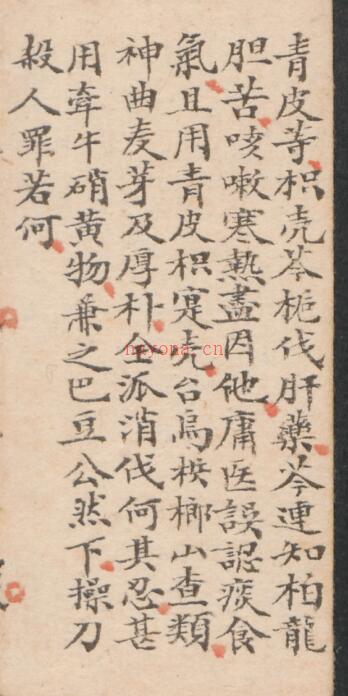 青皮等枳壳芩栀伐肝藥芩連知柏龍
胆苦咳嗽寒熱盡因他庸医誤認痰食
氣且用青皮枳寔壳台烏梹榔山查類
神曲麦芽及厚朴派消伐何其忍甚
用牽牛硝黄物兼之巴豆公然下操刀
殺人罪若何
nayona.cn